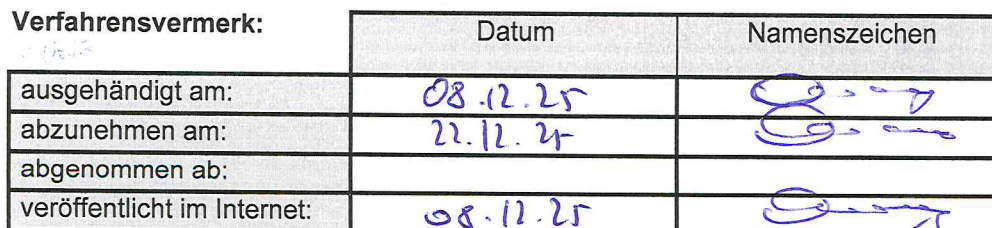 Verfahrensvermerk:
Datum Namenszeichen
ausgehändigt am: 08.12.25
abzunehmen am: 22.12.25
abgenommen ab:
veröffentlicht im Internet: 08.12.25